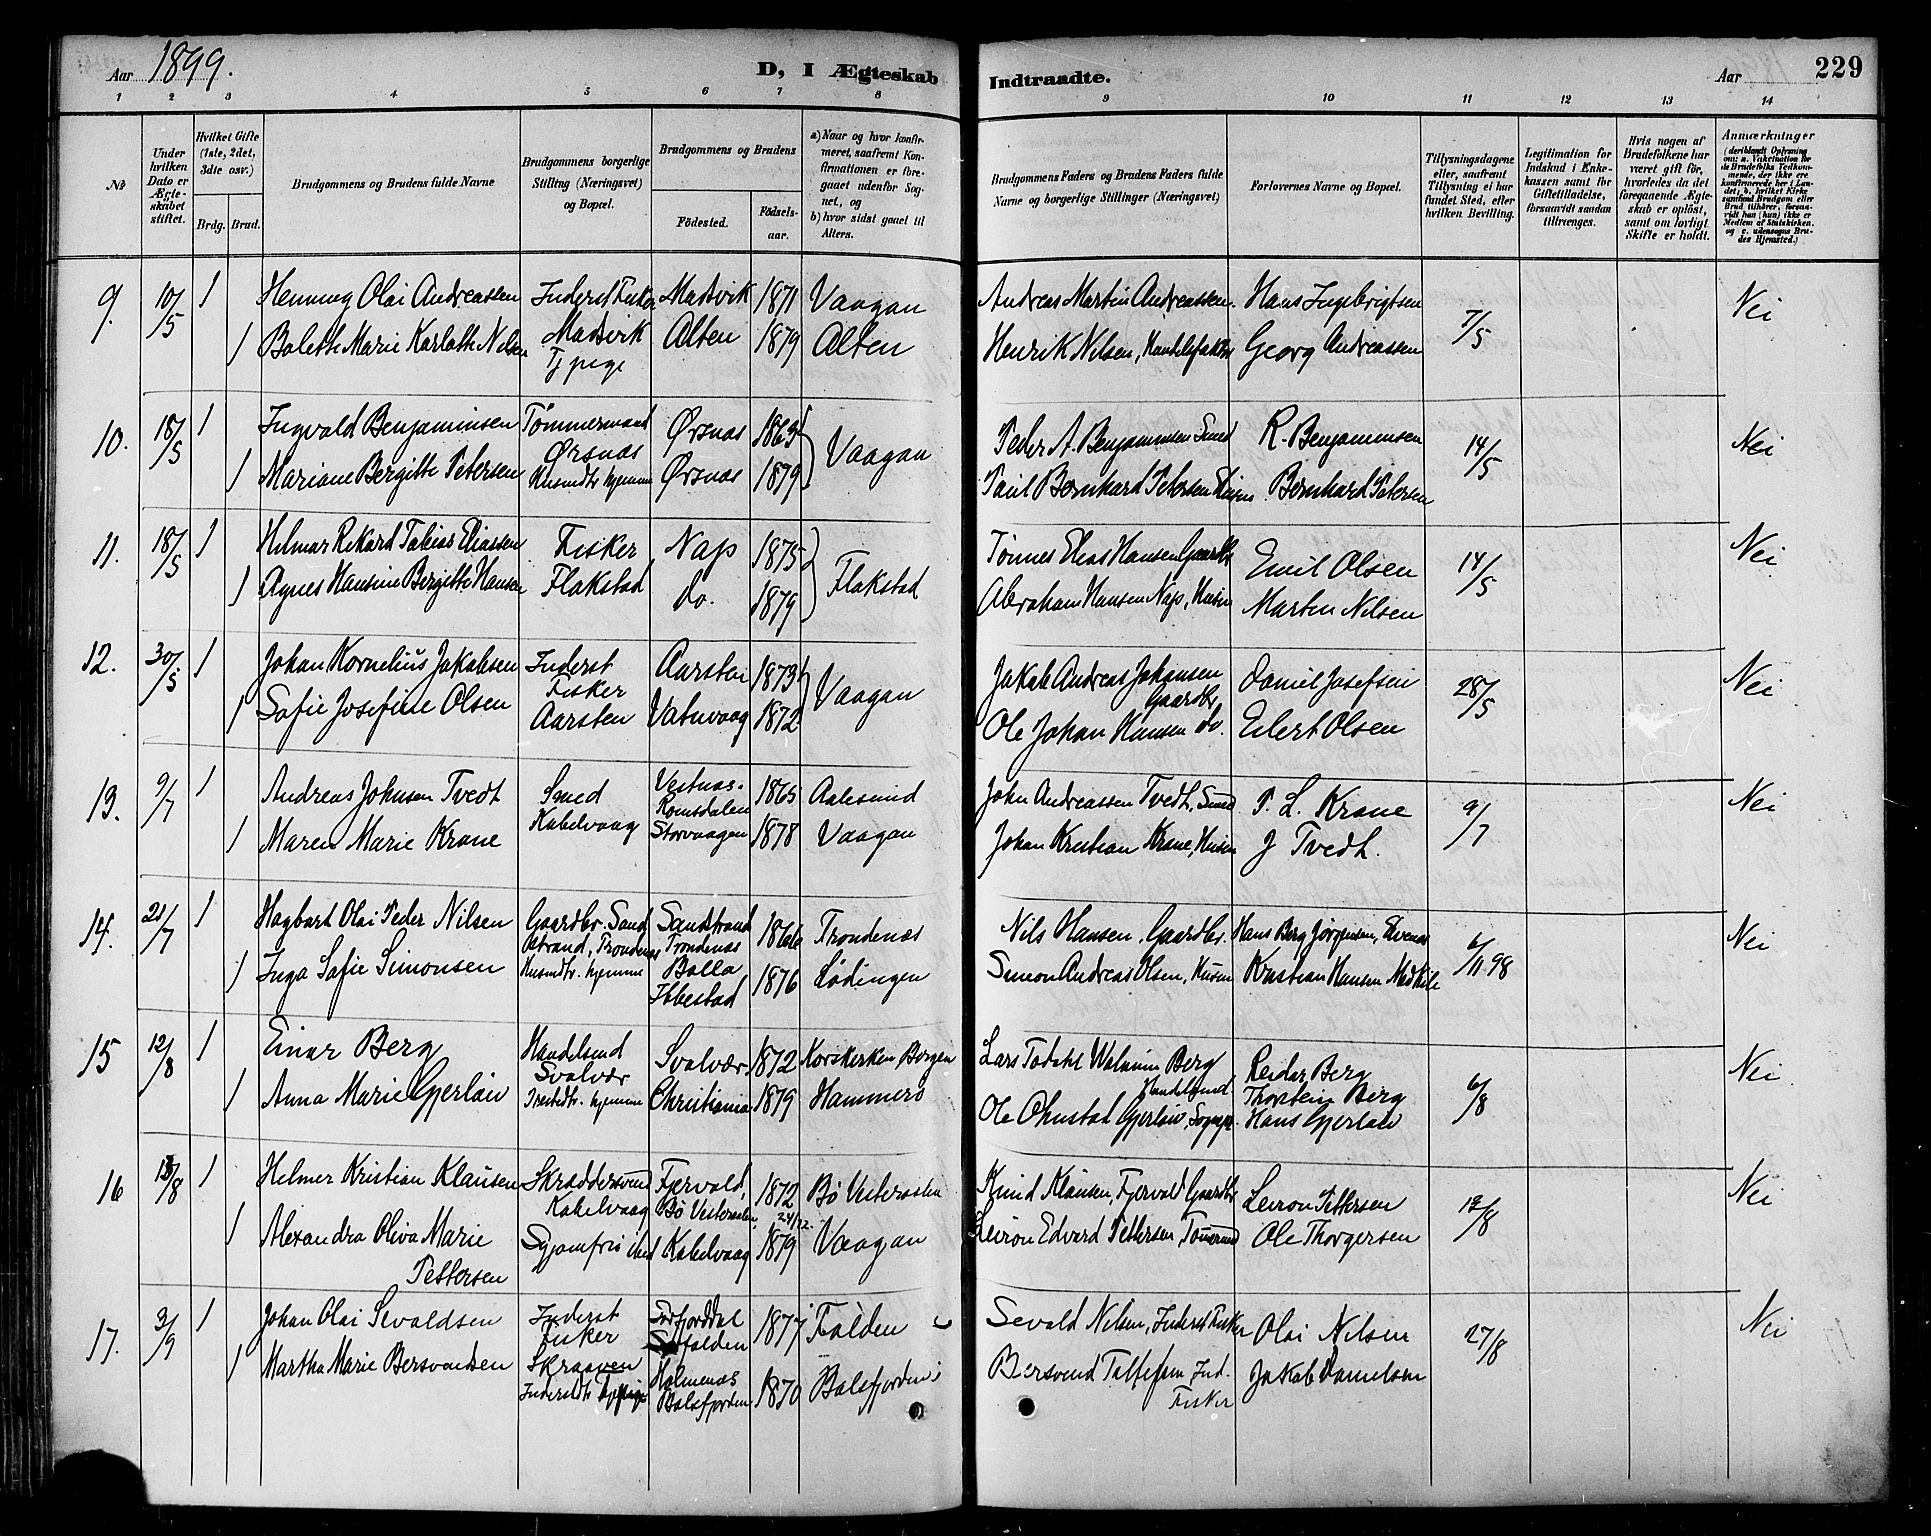 Aar 1899.
D, I Ægteskab Indtraadte.
Aar
229
1 2 3 4 5 6 7 8 9 10 11 12 13 14
No
Under hvilken Dato er Ægteskabet stiftet.
Hvilket Gifte (1ste, 2det, 3die osv.)
Brdg. Brud.
Brudgommens og Brudens fulde Navne
Brudgommens borgerlige Stilling (Næringsvei) og Bopæl.
Brudgommens og Brudens
Fødested. Fødselsaar.
a) Naar og hvor konfirmeret, saafremt Konfirmationen er foregaaet udenfor Sognet, og
b) hvor sidst gaaet til Alters.
Brudgommens Faders og Brudens Faders fulde Navne og borgerlige Stillinger (Næringsvei)
Forlovernes Navne og Bopæl.
Tillysningsdagene eller, saafremt Tillysning ei har fundet Sted, efter hvilken Bevilling.
Legitimation for Indskud i Enkekassen samt for Giftetilladelse, forsaavidt saadan tiltrænges.
Hvis nogen af Brudefolkene har været gift før, hvorledes da det foregaaende Ægteskab er opløst, samt om lovligt Skifte er holdt.
Anmærkninger
9. 10/5 1 Hemmeg Olai Andreassen Inderst Fisker Mastvik 1871 Vaagan Andreas Martin Andreassen. Hans Ingebrigtsen 7/5 Nei
1 Bolette Marie Karlotte Nilsen Mastvik Tj pige Alten 1879 Alten Henrik Nilsen, Handelsfaktor Georg Andreassen
10. 18/5 1 Ingvald Benjaminsen Tømmermand Ørsnæs Ørsnæs 1869 Vaagan Peder A. Benjaminsen Smed R. Benjaminsen 14/5 Nei
1 Mariane Bergitte Petersen Husmdtr hjemme Ørsnæs 1879 Paul Bernhard Petersen Husm Bernhard Petersen
11. 18/5 1 Helmar Rikard Tobias Eliassen Fisker Nap 1875 Flakstad Tønnes Elias Hansen Gaardbr Emil Olsen 14/5 Nei
1 Agnes Hansine Bergitte Hansen Flakstad do. 1879 Abraham Hansen Nap, Husm Martin Nilsen
12. 30/5 1 Johan Kornelius Jakobsen Inderst Fisker Aarsten 1873 Vaagan Jakob Andreas Johansen Gaardbr Daniel Josefsen 28/5 Nei
1 Sofie Josefine Olsen Aarsten Vatnvaag 1872 Ole Johan Hansen do. Edert Olsen
13. 9/7 1 Andreas Johnsen Tvedt Smed Kabelvaag Vestnæs. Romsdalen 1865 Aalesund John Andreassen Tvedt, Smed P. L. Krane 9/7 Nei
1 Maren Marie Krane Storvaagen 1878 Vaagan Johan Kristian Krane, Husm J Tvedt.
14. 21/7 1 Hagbart Olai Peder Nilsen Gaardbr. Sandstrand, Trondenæs Sandstrand Trondenæs 1866 Trondenæs Nils Hansen, Gaardbr. Hans Berg Jørgensen, Evenes 6/11 98 Nei
1 Inga Sofie Simonsen Husmdtr. hjemme Bolla Ibbestad 1876 Lødingen Simon Andreas Olsen, Husm Kristian Hansen
15 12/8 1 Einar Berg Handelsmd Svolvær Svolvær 1872 Korskirken Bergen Lars Todahl Walnum Berg Handelsmd Reidar Berg Thorstein Berg 6/8 Nei
1 Anna Marie Gjerløw Prestedtr. hjemme Christiania 1879 Hammerø Ole Gjerløw, Sognepr. Hans Gjerløw
16 13/8 1 Helmer Kristian Klausen Skræddersvend Kabelvaag Fjervold, Bø Vesteraalen 1872 Bø Vesteraalen Knud Klausen, Fjervold Gaardbr Leiron Pettersen 13/8 Nei
1 Alexandra Oliva Marie Pettersen Syjomfru ibid Kabelvaag 24/12. 1879 Vaagan Leiron Edvard Pettersen, Tømmermd Ole Thorgersen
17. 3/9 1 Johan Olai Sevaldsen Inderst Fisker Skraaven Sørfjorddal Sørfolden 1877 Folden Sevald Nilsen, Inderst Fisker Olai Nilsen 27/8 Nei
1 Martha Marie Bersvendsen Inderstdtr Tjpige Holmenæs Balsfjorden 1870 Balsfjorden Bersvend Tollefsen Ind. Fisker Jakob Danielsen